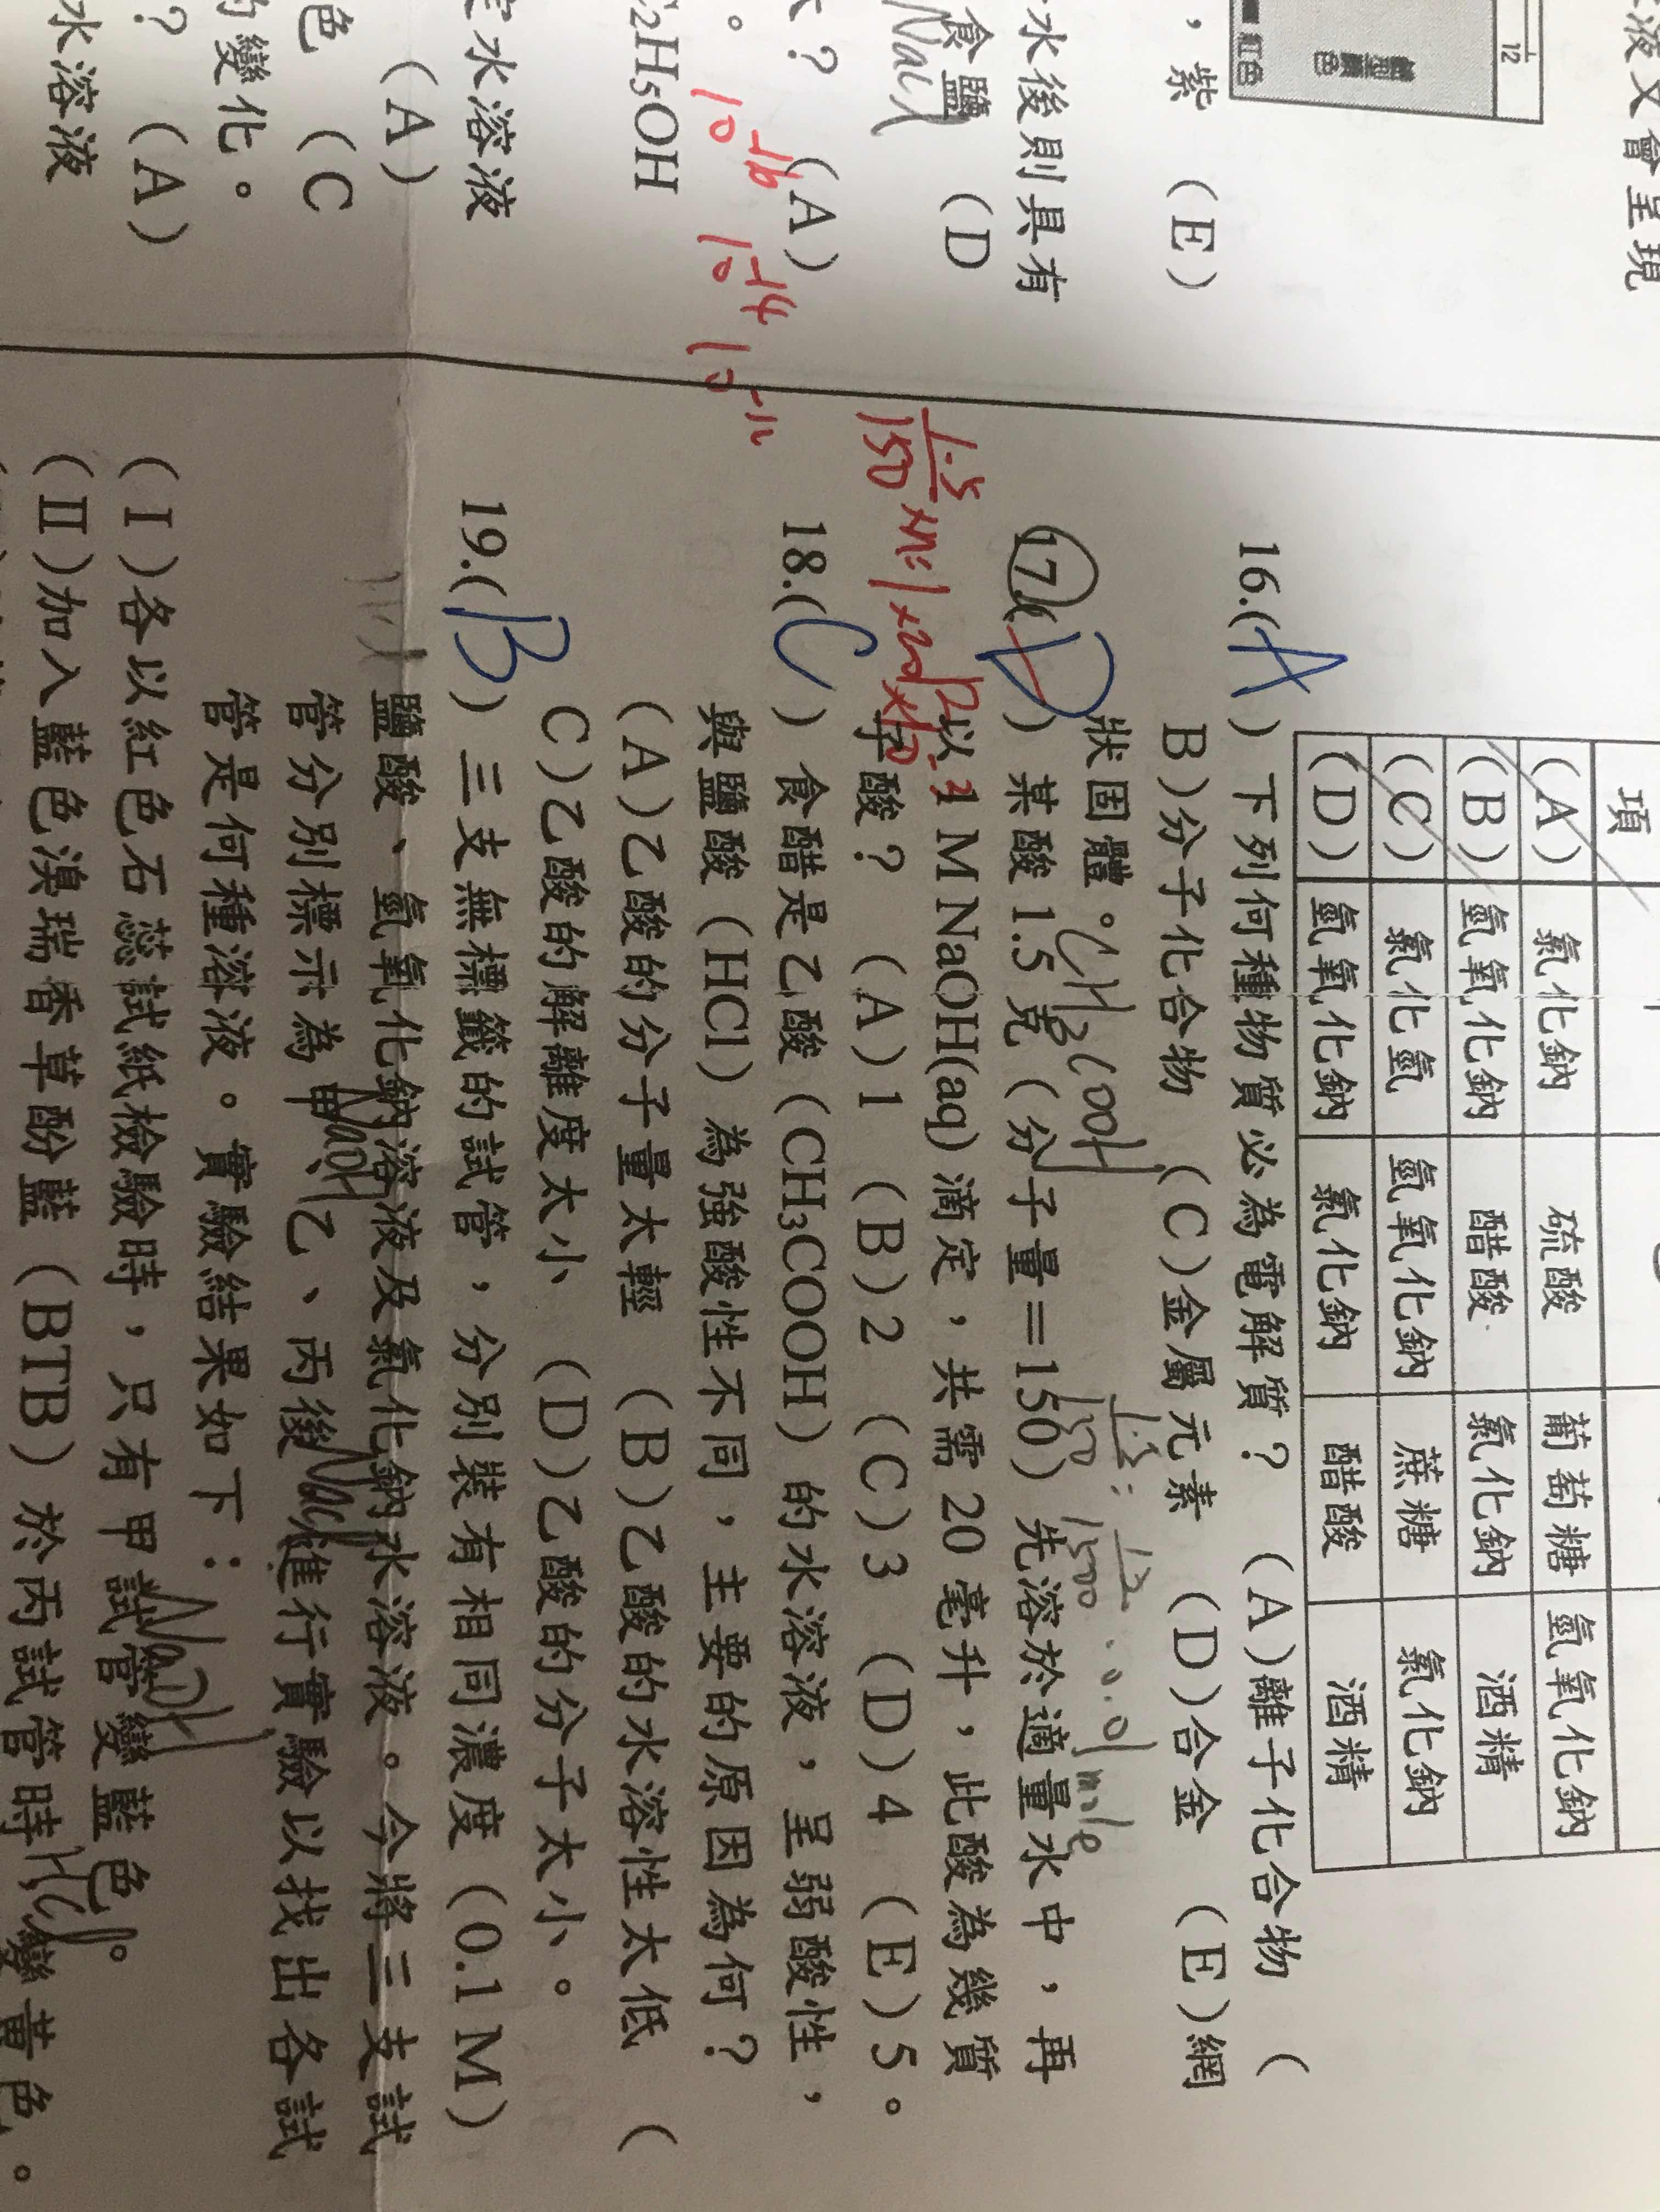 液又會呈現
12
紅色
，紫 （E）
水後則具有
食鹽 （D
NaCl
？ （A）
2H5OH
定水溶液
（A）
色 （C
的變化。
？（A）
水溶液
10-16 10-14 10-12
項
（A） 氯化鈉 硫酸 葡萄糖 氫氧化鈉
（B） 氫氧化鈉 醋酸 氯化鈉 酒精
（C） 氯化氫 氫氧化鈉 蔗糖 氯化鈉
（D） 氫氧化鈉 氯化鈉 醋酸 酒精
16.(A）下列何種物質必為電解質？ （A)離子化合物 （
B)分子化合物 （C)金屬元素 （D)合金 （E)網
狀固體。
CH3COOH
1.5/150 = 15/1500 = 0.01 mole
17.(D）某酸 1.5 克（分子量＝150）先溶於適量水中，再
以 1 M NaOH(aq) 滴定，共需 20 毫升，此酸為幾質
子酸？ （A)1 （B)2 （C)3 （D)4 （E)5。
1.5/150 ×n=1×20×10-3
18.(C）食醋是乙酸（CH3COOH）的水溶液，呈弱酸性，
與鹽酸（HCl）為強酸性不同，主要的原因為何？
（A)乙酸的分子量太輕 （B)乙酸的水溶性太低 （
C)乙酸的解離度太小 （D)乙酸的分子太小。
19.(B）三支無標籤的試管，分別裝有相同濃度（0.1 M）
鹽酸、氫氧化鈉溶液及氯化鈉水溶液。今將三支試
管分別標示為甲、乙、丙後，進行實驗以找出各試
NaOH NaCl
管是何種溶液。實驗結果如下：
NaOH
（Ⅰ)各以紅色石蕊試紙檢驗時，只有甲試管變藍色。
HCl
（Ⅱ)加入藍色溴瑞香草酚藍（BTB）於丙試管時變黃色。